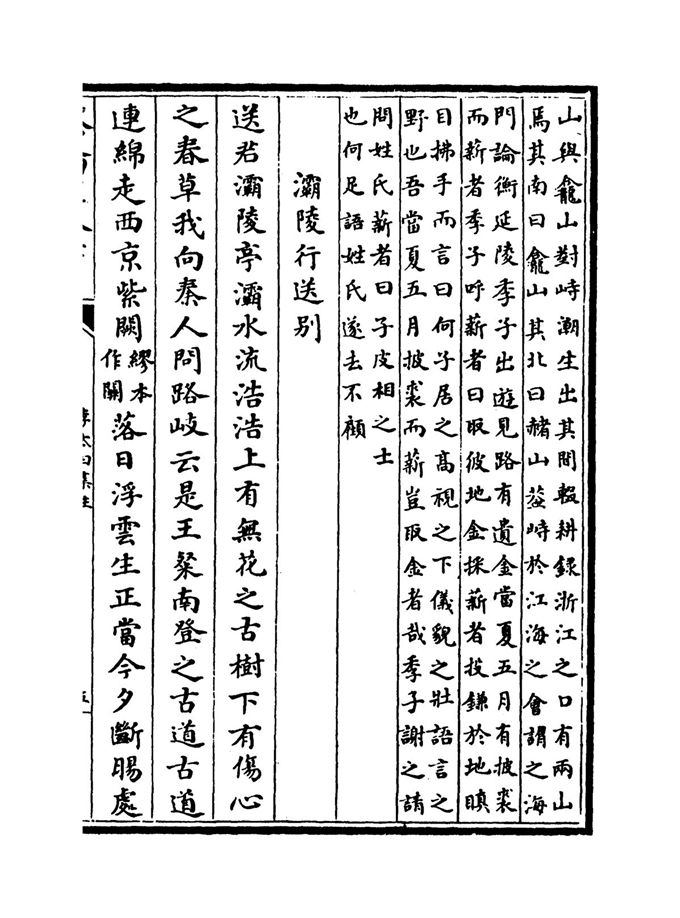 山與龕山對峙潮生出其間輟耕録浙江之口有兩山
焉其南曰龕山其北曰赭山葢峙於江海之會謂之海
門論衡延陵季子出遊見路有遺金當夏五月有披裘
而薪者季子呼薪者曰取彼地金採薪者投鎌於地瞋
目拂手而言曰何子居之高視之下儀貌之壯語言之
野也吾當夏五月披裘而薪豈取金者哉季子謝之請
問姓氏薪者曰子皮相之士
也何足語姓氏遂去不顧
灞陵行送别
送君灞陵亭灞水流浩浩上有無花之古樹下有傷心
之春草我向秦人問路岐云是王粲南登之古道古道
連綿走西京紫闕繆本作關落日浮雲生正當今夕斷腸處
李太白集注